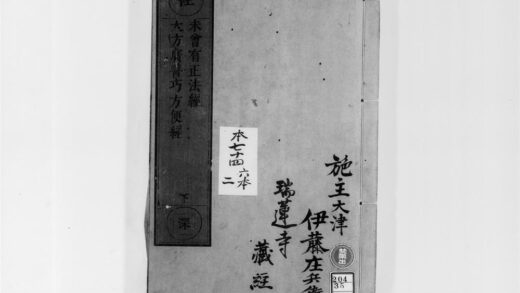 未曾有正法經
大方廣善巧方便經
下
深
本七十四
六本
二
施主大津
伊藤庄兵衛
瑞蓮寺
藏經
禁帶出
204